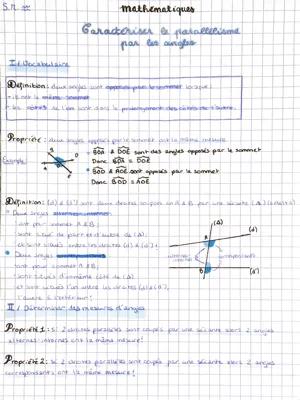 Mathématiques
Caractériser le parallélisme
par les angles
I/ Vocabulaire
Définition: deux angles sont opposés par le sommet lorsque:
• ils ont le même sommet
• les côtés de l'un sont dans le prolongement des côtés de l'autre.
Propriété: deux angles opposés par le sommet ont la même mesure
Exemple
• BOA & DOE sont des angles opposés par le sommet
Donc BOA = DOE
• BOD & AOE sont opposés par le sommet
Donc BOD = AOE
Définition: (d) & (d') sont deux droites coupées en A & B par une sécante (Δ)
• Deux angles
ont pour sommet A & B
sont situés de part et d'autre de (Δ)
et sont situés entre les droites (d) & (d')
• Deux angles
ont pour sommet A & B
sont situés du même côté de (Δ)
et sont situés l'un entre les droites (d) & (d'),
l'autre à l'extérieur!
(Δ)
(d)
A
B
(d')
II/ Déterminer des mesures d'angles
Propriété 1: si 2 droites parallèles sont coupées par une sécante alors 2 angles
alternes internes ont la même mesure!
Propriété 2: si 2 droites parallèles sont coupées par une sécante alors 2 angles
correspondants ont la même mesure!